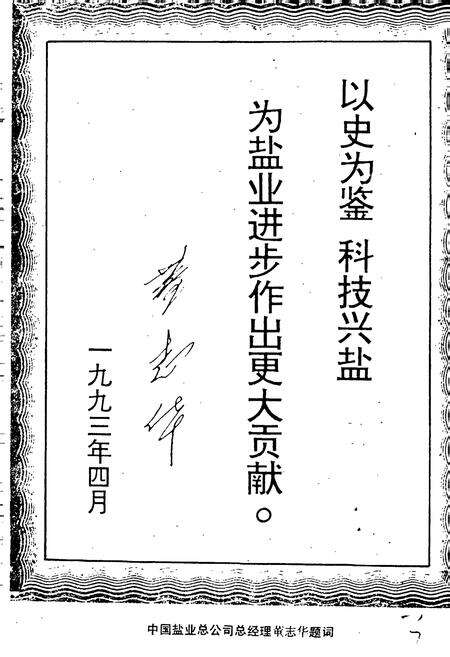 以史为鉴 科技兴盐
为盐业进步作出更大贡献。
董志华
一九九三年四月
中国盐业总公司总经理董志华题词